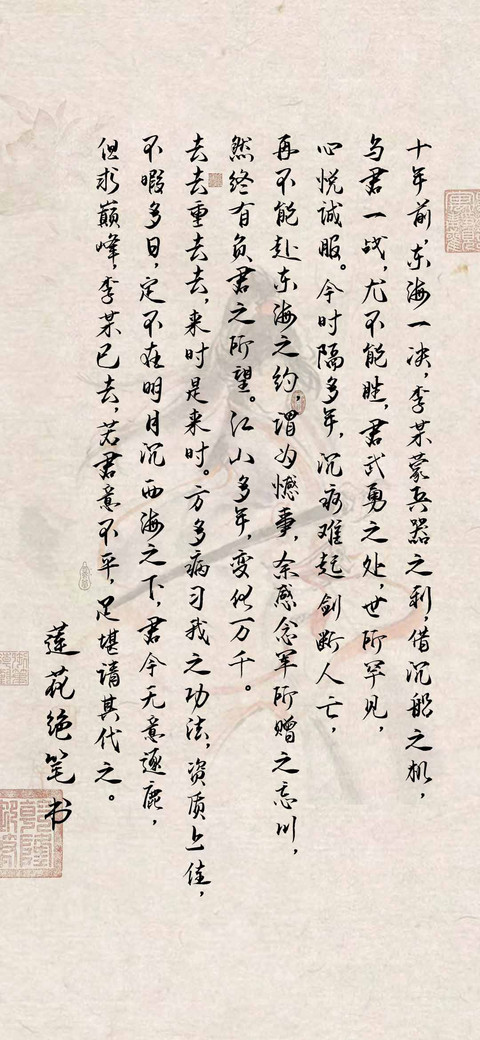 十年前,东海一决,李某蒙兵器之利,借沉船之机,
与君一战,尤不能胜,君武勇之处,世所罕见,
心悦诚服。今时隔多年,沉疴难起剑断人亡,
再不能赴东海之约,谓为憾事,余感念军所赠之忘川,
然终有负君之所望。江山多年,变化万千。
去去重去去,来时是来时。方多病习我之功法,资质上佳,
不暇多日,定不在明月沉西海之下,君今无意逐鹿,
但求巅峰,李某已去,若君意不平,足堪请其代之。
莲花绝笔书